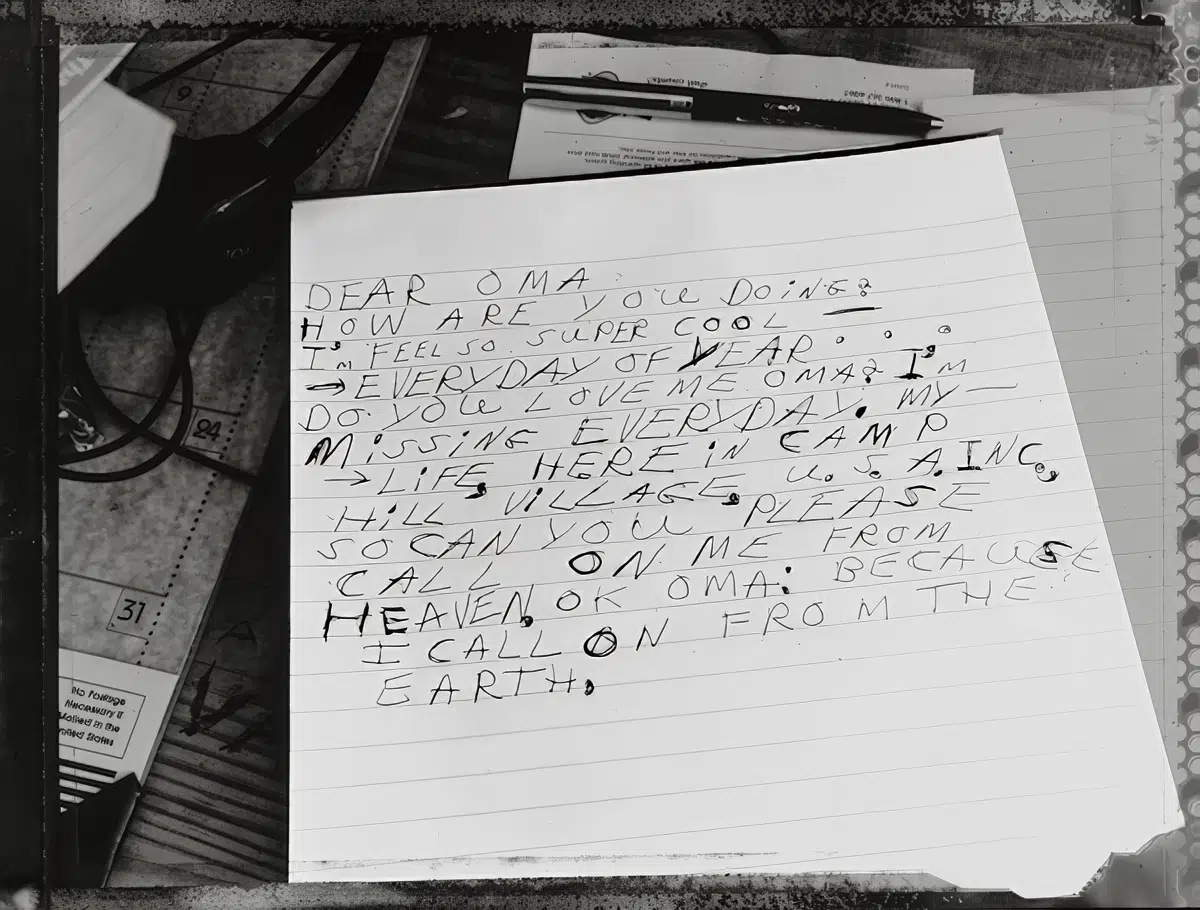 9
24
31
No Postage
Necessary if
Mailed in the
United States
DEAR OMA
HOW ARE YOU DOING?
I'm FEEL SO SUPER COOL —
→ EVERYDAY OF YEAR
DO YOU LOVE ME OMA? I'M
MISSING EVERYDAY. MY —
→ LIFE, HERE IN CAMP
HILL VILLAGE, U.S.A. INC,
SO CAN YOU PLEASE
CALL ON ME FROM
HEAVEN, OK OMA: BECAUSE
I CALL ON FROM THE
EARTH,